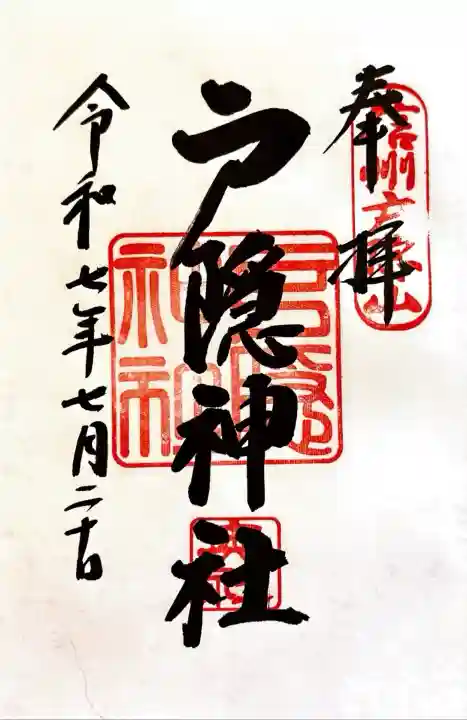 奉拝
信州戸隠山
戸隠神社
戸隠神社
令和七年七月二十日